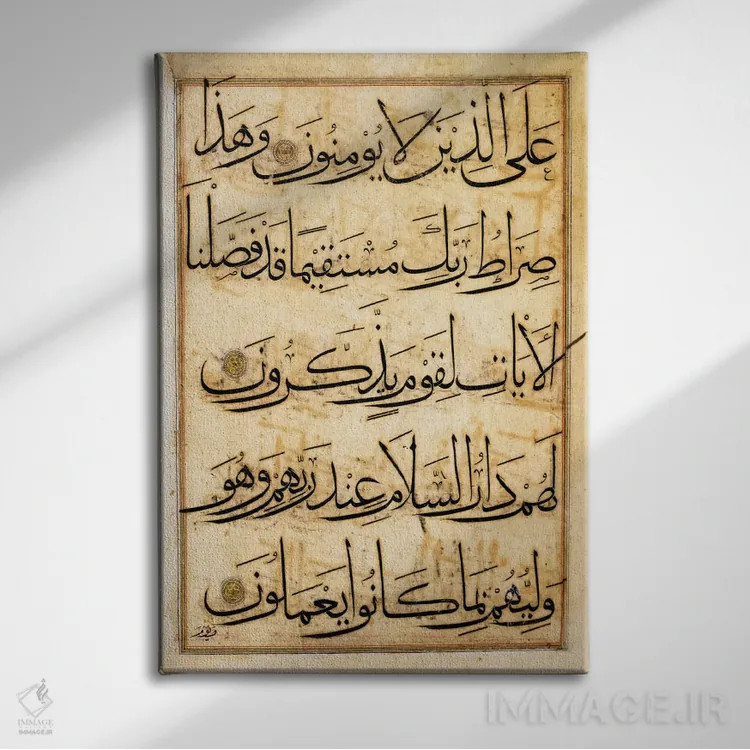 عَلَى الذِّيْنَ لَا يُوْمِنُوْنَ وَهَذَا
صِرَاطُ رَبِّكَ مُسْتَقِيْمًا قَدْ فَصَّلْنَا
الْأَيَاتِ لِقَوْمٍ يَذَّكَّرُوْنَ
لَهُمْ دَارُ السَّلَامِ عِنْدَ رَبِّهِمْ وَهُوَ
وَلِيُّهُمْ بِمَا كَانُوا يَعْمَلُوْنَ
IMMAGE
IMMAGE.IR
IMMAGE.IR